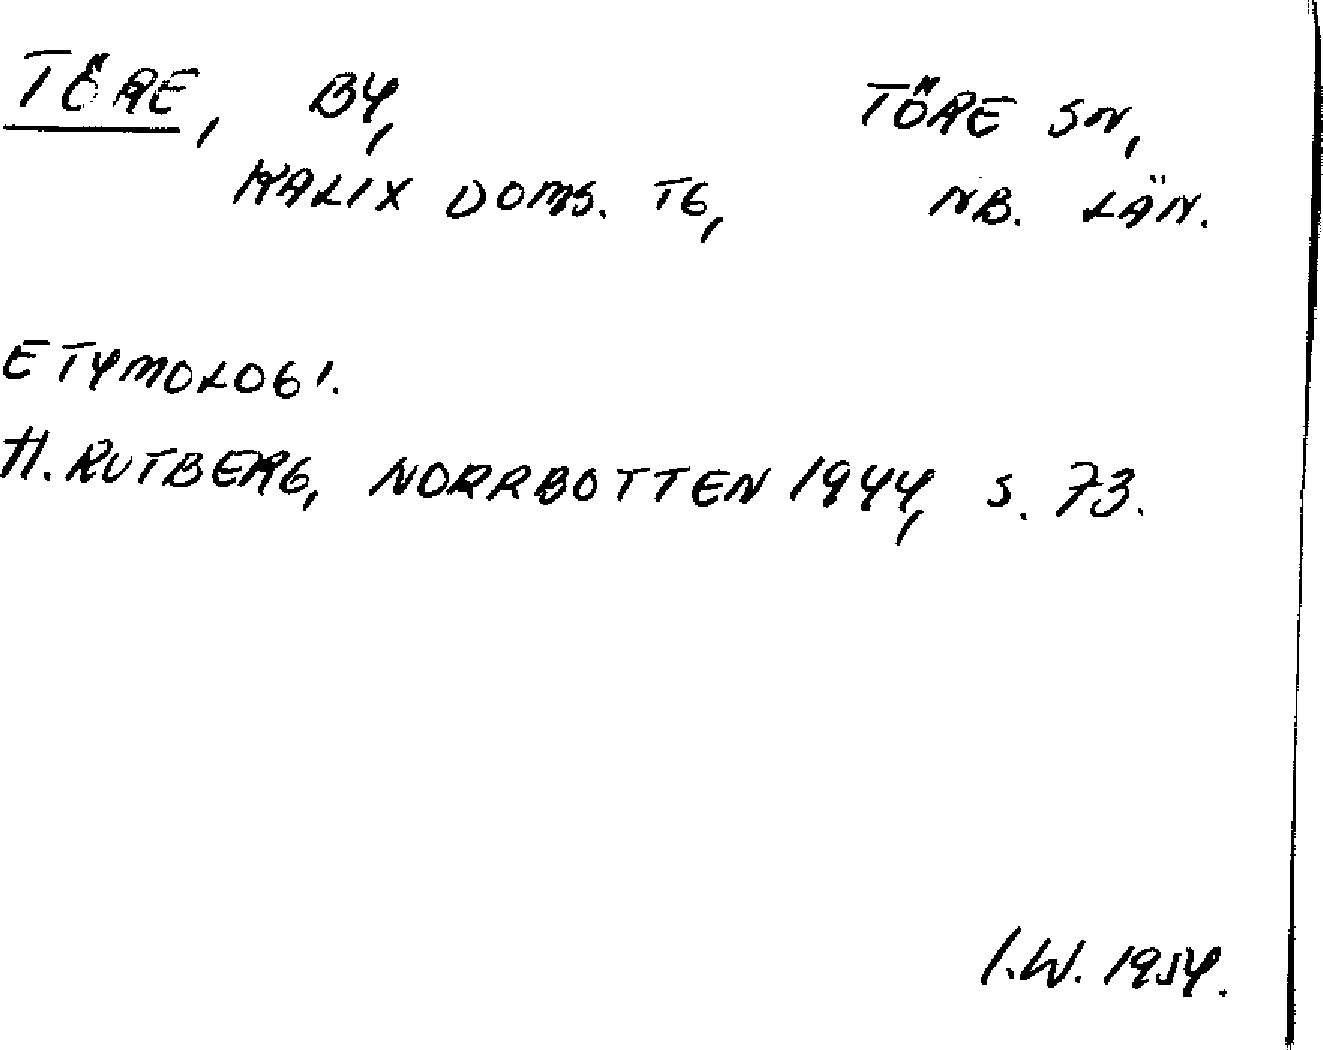 TÖRE, BY, TÖRE SN,
KALIX DOMS. TG, NB. LÄN.
ETYMOLOGI.
H. RUTBERG, NORRBOTTEN 1944, S. 73.
I.W. 1954.